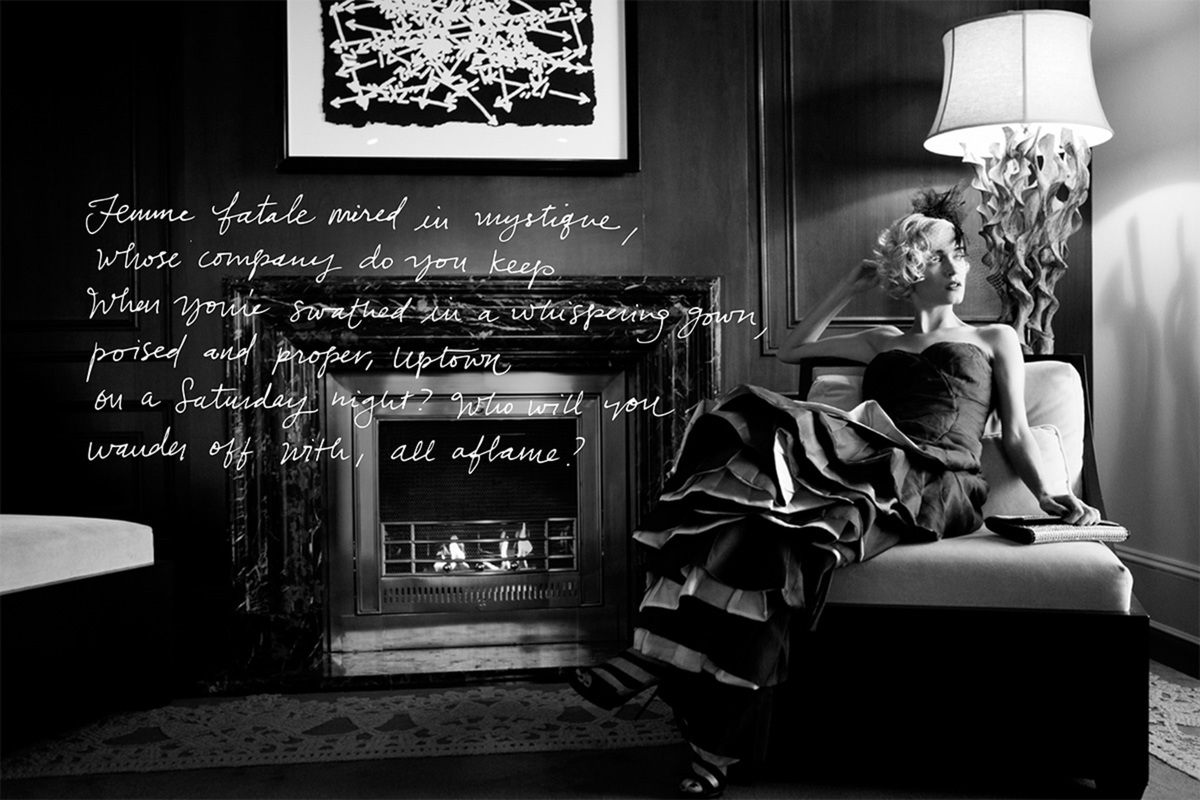 Femme fatale mired in mystique,
whose company do you keep
When you're swathed in a whispering gown,
poised and proper, Uptown
on a Saturday night? Who will you
wander off with, all aflame?